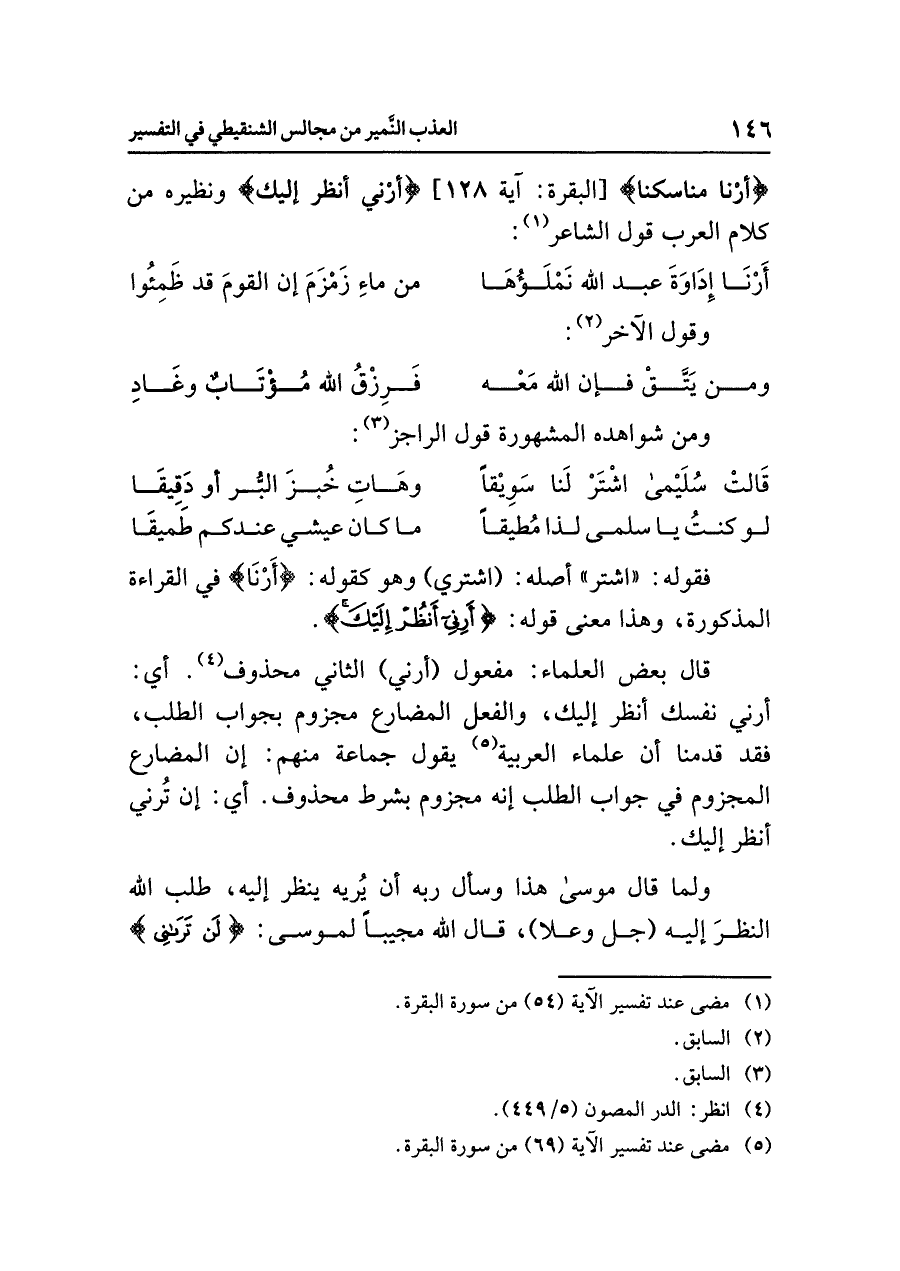 ١٤٦ العذب النَّمير من مجالس الشنقيطي في التفسير
﴿أرْنا مناسكنا﴾ [البقرة: آية ١٢٨] ﴿أرْني أنظر إليك﴾ ونظيره من
كلام العرب قول الشاعر(١):
أَرْنَــا إِدَاوَةَ عبــد الله نَمْلَــؤُهَــا من ماءِ زَمْزَمَ إن القومَ قد ظَمِئُوا
وقول الآخر(٢):
ومــن يَتَّــقْ فــإن الله مَعْــه فَــرِزْقُ الله مُــؤْتَــابٌ وغَــادِ
ومن شواهده المشهورة قول الراجز(٣):
قَالتْ سُلَيْمىٰ اشْتَرْ لَنا سَوِيْقاً وهَــاتِ خُبــزَ البُّــر أو دَقِيقَــا
لــو كنــتُ يــا سلمــى لــذا مُطيقــاً مــا كــان عيشــي عنــدكــم طَميقَــا
فقوله: «اشتر» أصله: (اشتري) وهو كقوله: ﴿أَرْنَا﴾ في القراءة
المذكورة، وهذا معنى قوله: ﴿أَرِنِيٓ أَنظُرْ إِلَيْكَۚ﴾.
قال بعض العلماء: مفعول (أرني) الثاني محذوف(٤). أي:
أرني نفسك أنظر إليك، والفعل المضارع مجزوم بجواب الطلب،
فقد قدمنا أن علماء العربية(٥) يقول جماعة منهم: إن المضارع
المجزوم في جواب الطلب إنه مجزوم بشرط محذوف. أي: إن تُرني
أنظر إليك.
ولما قال موسىٰ هذا وسأل ربه أن يُريه ينظر إليه، طلب الله
النظــرَ إليــه (جــل وعــلا)، قــال الله مجيبــاً لمــوســى: ﴿لَن تَرَىٰنِي﴾
(١) مضى عند تفسير الآية (٥٤) من سورة البقرة.
(٢) السابق.
(٣) السابق.
(٤) انظر: الدر المصون (٥/٤٤٩).
(٥) مضى عند تفسير الآية (٦٩) من سورة البقرة.